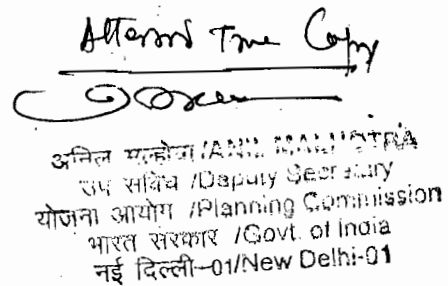 Attested True Copy
अनिल मल्होत्रा /ANIL MALHOTRA
उप सचिव /Deputy Secretary
योजना आयोग /Planning Commission
भारत सरकार /Govt. of India
नई दिल्ली–01/New Delhi-01